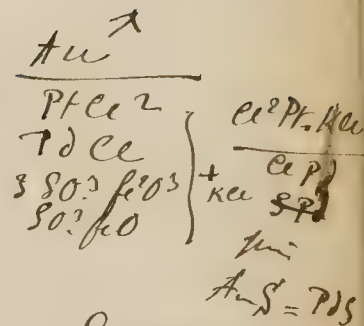 Au
PtCl2
PdCl
3SO3 Fe2O3
SO3 FeO
+ KCl
Cl2Pt. KCl
ClPd
SPd
AuS = PdS